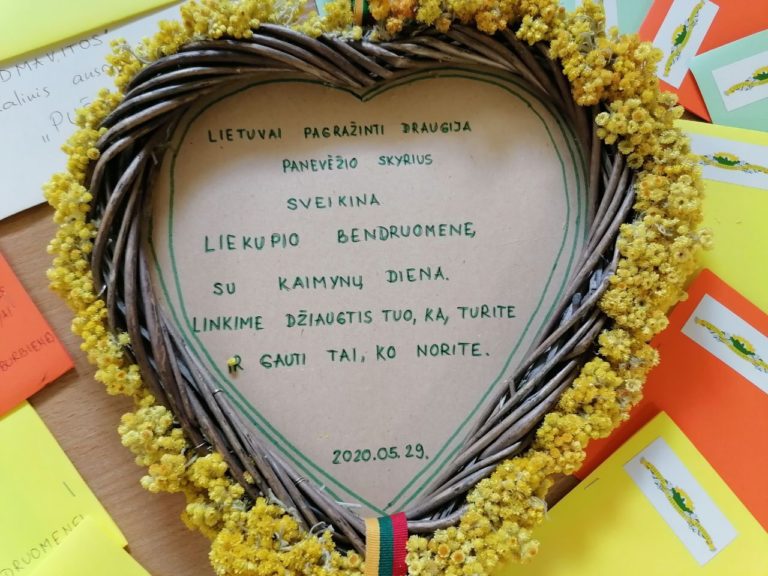 LIETUVAI PAGRAŽINTI DRAUGIJA
PANEVĖŽIO SKYRIUS
SVEIKINA
LIEKUPIO BENDRUOMENĘ
SU KAIMYNŲ DIENA.
LINKIME DŽIAUGTIS TUO, KĄ TURITE
IR GAUTI TAI, KO NORITE.
2020.05.29.